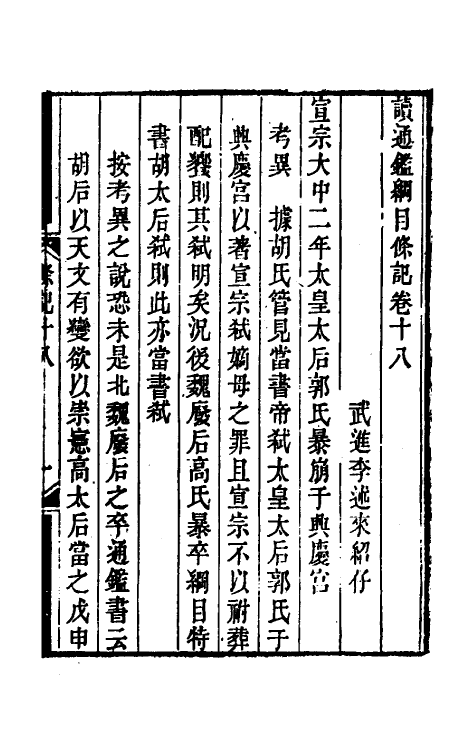 讀通鑑綱目條記卷十八
武進李述來紹仔
宣宗大中二年太皇太后郭氏暴崩于興慶宮
考異　據胡氏管見當書帝弑太皇太后郭氏于
興慶宮以著宣宗弑嫡母之罪且宣宗不以祔葬
配獿則其弑明矣況後魏廢后高氏暴卒綱目特
書胡太后弑則此亦當書弑
按考異之說恐未是北魏廢后之卒通鑑書云
胡后以天文有變欲以崇憲高太后當之戊申
條記十八
一